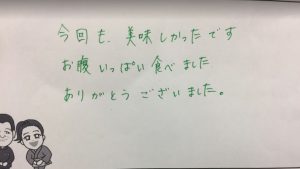 今回も、美味しかったです
お腹いっぱい食べました
ありがとうございました。